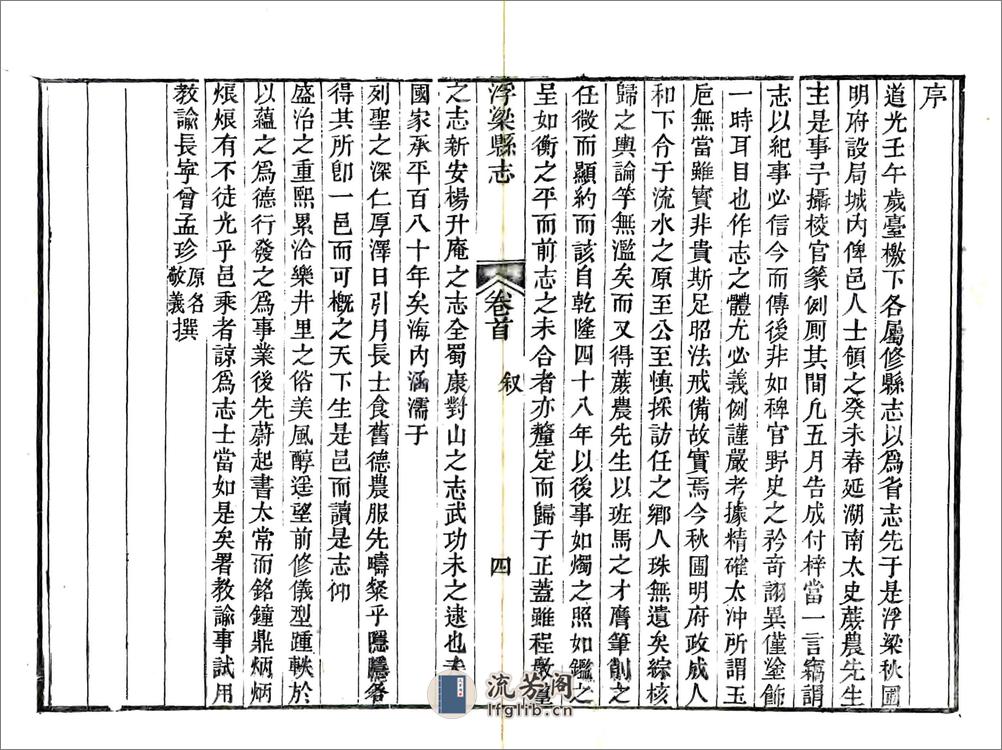 序
道光壬午歲臺檄下各屬修縣志以爲省志先于是浮梁秋圃
明府設局城內俾邑人士領之癸未春延湖南太史蔗農先生
主是事予攝校官篆例厠其間凢五月告成付梓當一言竊謂
志以紀事必信今而傳後非如稗官野史之矜奇詡異僅塗飾
一時耳目也作志之體尤必義例謹嚴考據精確太冲所謂玉
巵無當雖寳非貴斯足昭法戒備故實焉今秋圃明府政成人
和下合于流水之原至公至慎採訪任之鄉人珠無遺矣綜核
歸之輿論竽無濫矣而又得蔗農先生以班馬之才膺筆削之
任微而顯約而該自乾隆四十八年以後事如燭之照如鑑之
呈如衡之平而前志之未合者亦釐定而歸于正蓋雖程
浮梁縣志 卷首 叙 四
之志新安楊升庵之志全蜀康對山之志武功未之逮也
國家承平百八十年矣海內涵濡于
列聖之深仁厚澤日引月長士食舊德農服先疇粲乎隱隱各
得其所卽一邑而可槪之天下生是邑而讀是志仰
盛治之重熙累洽樂井里之俗美風醇遥望前修儀型踵軼於
以蘊之爲德行發之爲事業後先蔚起書太常而銘鐘鼎炳炳
烺烺有不徒光乎邑乘者諒爲志士當如是矣署教諭事試用
教諭長寧曾孟珍原名敬義撰
流芳阁
lfglib.cn